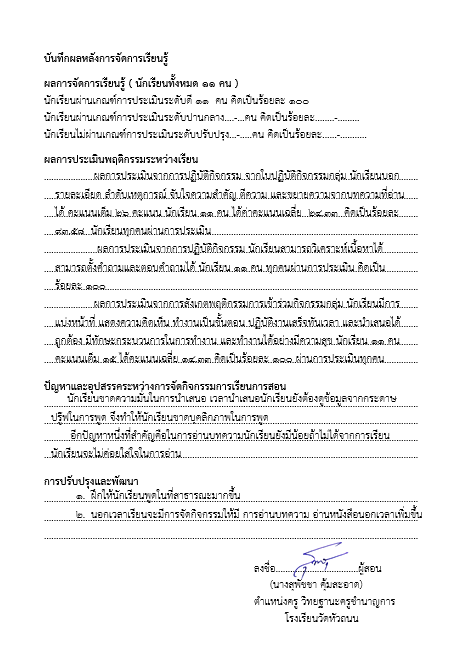 บันทึกผลหลังการจัดการเรียนรู้
ผลการจัดการเรียนรู้ ( นักเรียนทั้งหมด ๑๑ คน )
นักเรียนผ่านเกณฑ์การประเมินระดับดี ๑๑ คน คิดเป็นร้อยละ ๑๐๐
นักเรียนผ่านเกณฑ์การประเมินระดับปานกลาง....-...คน คิดเป็นร้อยละ........-.........
นักเรียนไม่ผ่านเกณฑ์การประเมินระดับปรับปรุง...-.....คน คิดเป็นร้อยละ......-...........
ผลการประเมินพฤติกรรมระหว่างเรียน
ผลการประเมินจากการปฏิบัติกิจกรรม จากใบปฏิบัติกิจกรรมกลุ่ม นักเรียนบอก
รายละเอียด ลำดับเหตุการณ์ จับใจความสำคัญ ตีความ และขยายความจากบทความที่อ่าน
ได้ คะแนนเต็ม ๒๖ คะแนน นักเรียน ๑๑ คน ได้ค่าคะแนนเฉลี่ย ๒๔.๓๓ คิดเป็นร้อยละ
๙๓.๕๗ นักเรียนทุกคนผ่านการประเมิน
ผลการประเมินจากการปฏิบัติกิจกรรม นักเรียนสามารถวิเคราะห์เนื้อหาได้
สามารถตั้งคำถามและตอบคำถามได้ นักเรียน ๑๑ คน ทุกคนผ่านการประเมิน คิดเป็น
ร้อยละ ๑๐๐
ผลการประเมินจากการสังเกตพฤติกรรมการเข้าร่วมกิจกรรมกลุ่ม นักเรียนมีการ
แบ่งหน้าที่ แสดงความคิดเห็น ทำงานเป็นขั้นตอน ปฏิบัติงานเสร็จทันเวลา และนำเสนอได้
ถูกต้อง มีทักษะกระบวนการในการทำงาน และทำงานได้อย่างมีความสุข นักเรียน ๑๑ คน
คะแนนเต็ม ๑๕ ได้คะแนนเฉลี่ย ๑๔.๓๓ คิดเป็นร้อยละ ๑๐๐ ผ่านการประเมินทุกคน
ปัญหาและอุปสรรคระหว่างการจัดกิจกรรมการเรียนการสอน
นักเรียนขาดความมั่นในการนำเสนอ เวลานำเสนอนักเรียนยังต้องดูข้อมูลจากกระดาษ
ปรู๊ฟในการพูด จึงทำให้นักเรียนขาดบุคลิกภาพในการพูด
อีกปัญหาหนึ่งที่สำคัญคือในการอ่านบทความนักเรียนยังมีน้อยถ้าไม่ได้จากการเรียน
นักเรียนจะไม่ค่อยใส่ใจในการอ่าน
การปรับปรุงและพัฒนา
๑. ฝึกให้นักเรียนพูดในที่สาธารณะมากขึ้น
๒. นอกเวลาเรียนจะมีการจัดกิจกรรมให้มี การอ่านบทความ อ่านหนังสือนอกเวลาเพิ่มขึ้น
ลงชื่อ..................................ผู้สอน
(นางสุพัชชา คุ้มสะอาด)
ตำแหน่งครู วิทยฐานะครูชำนาญการ
โรงเรียนวัดหัวถนน